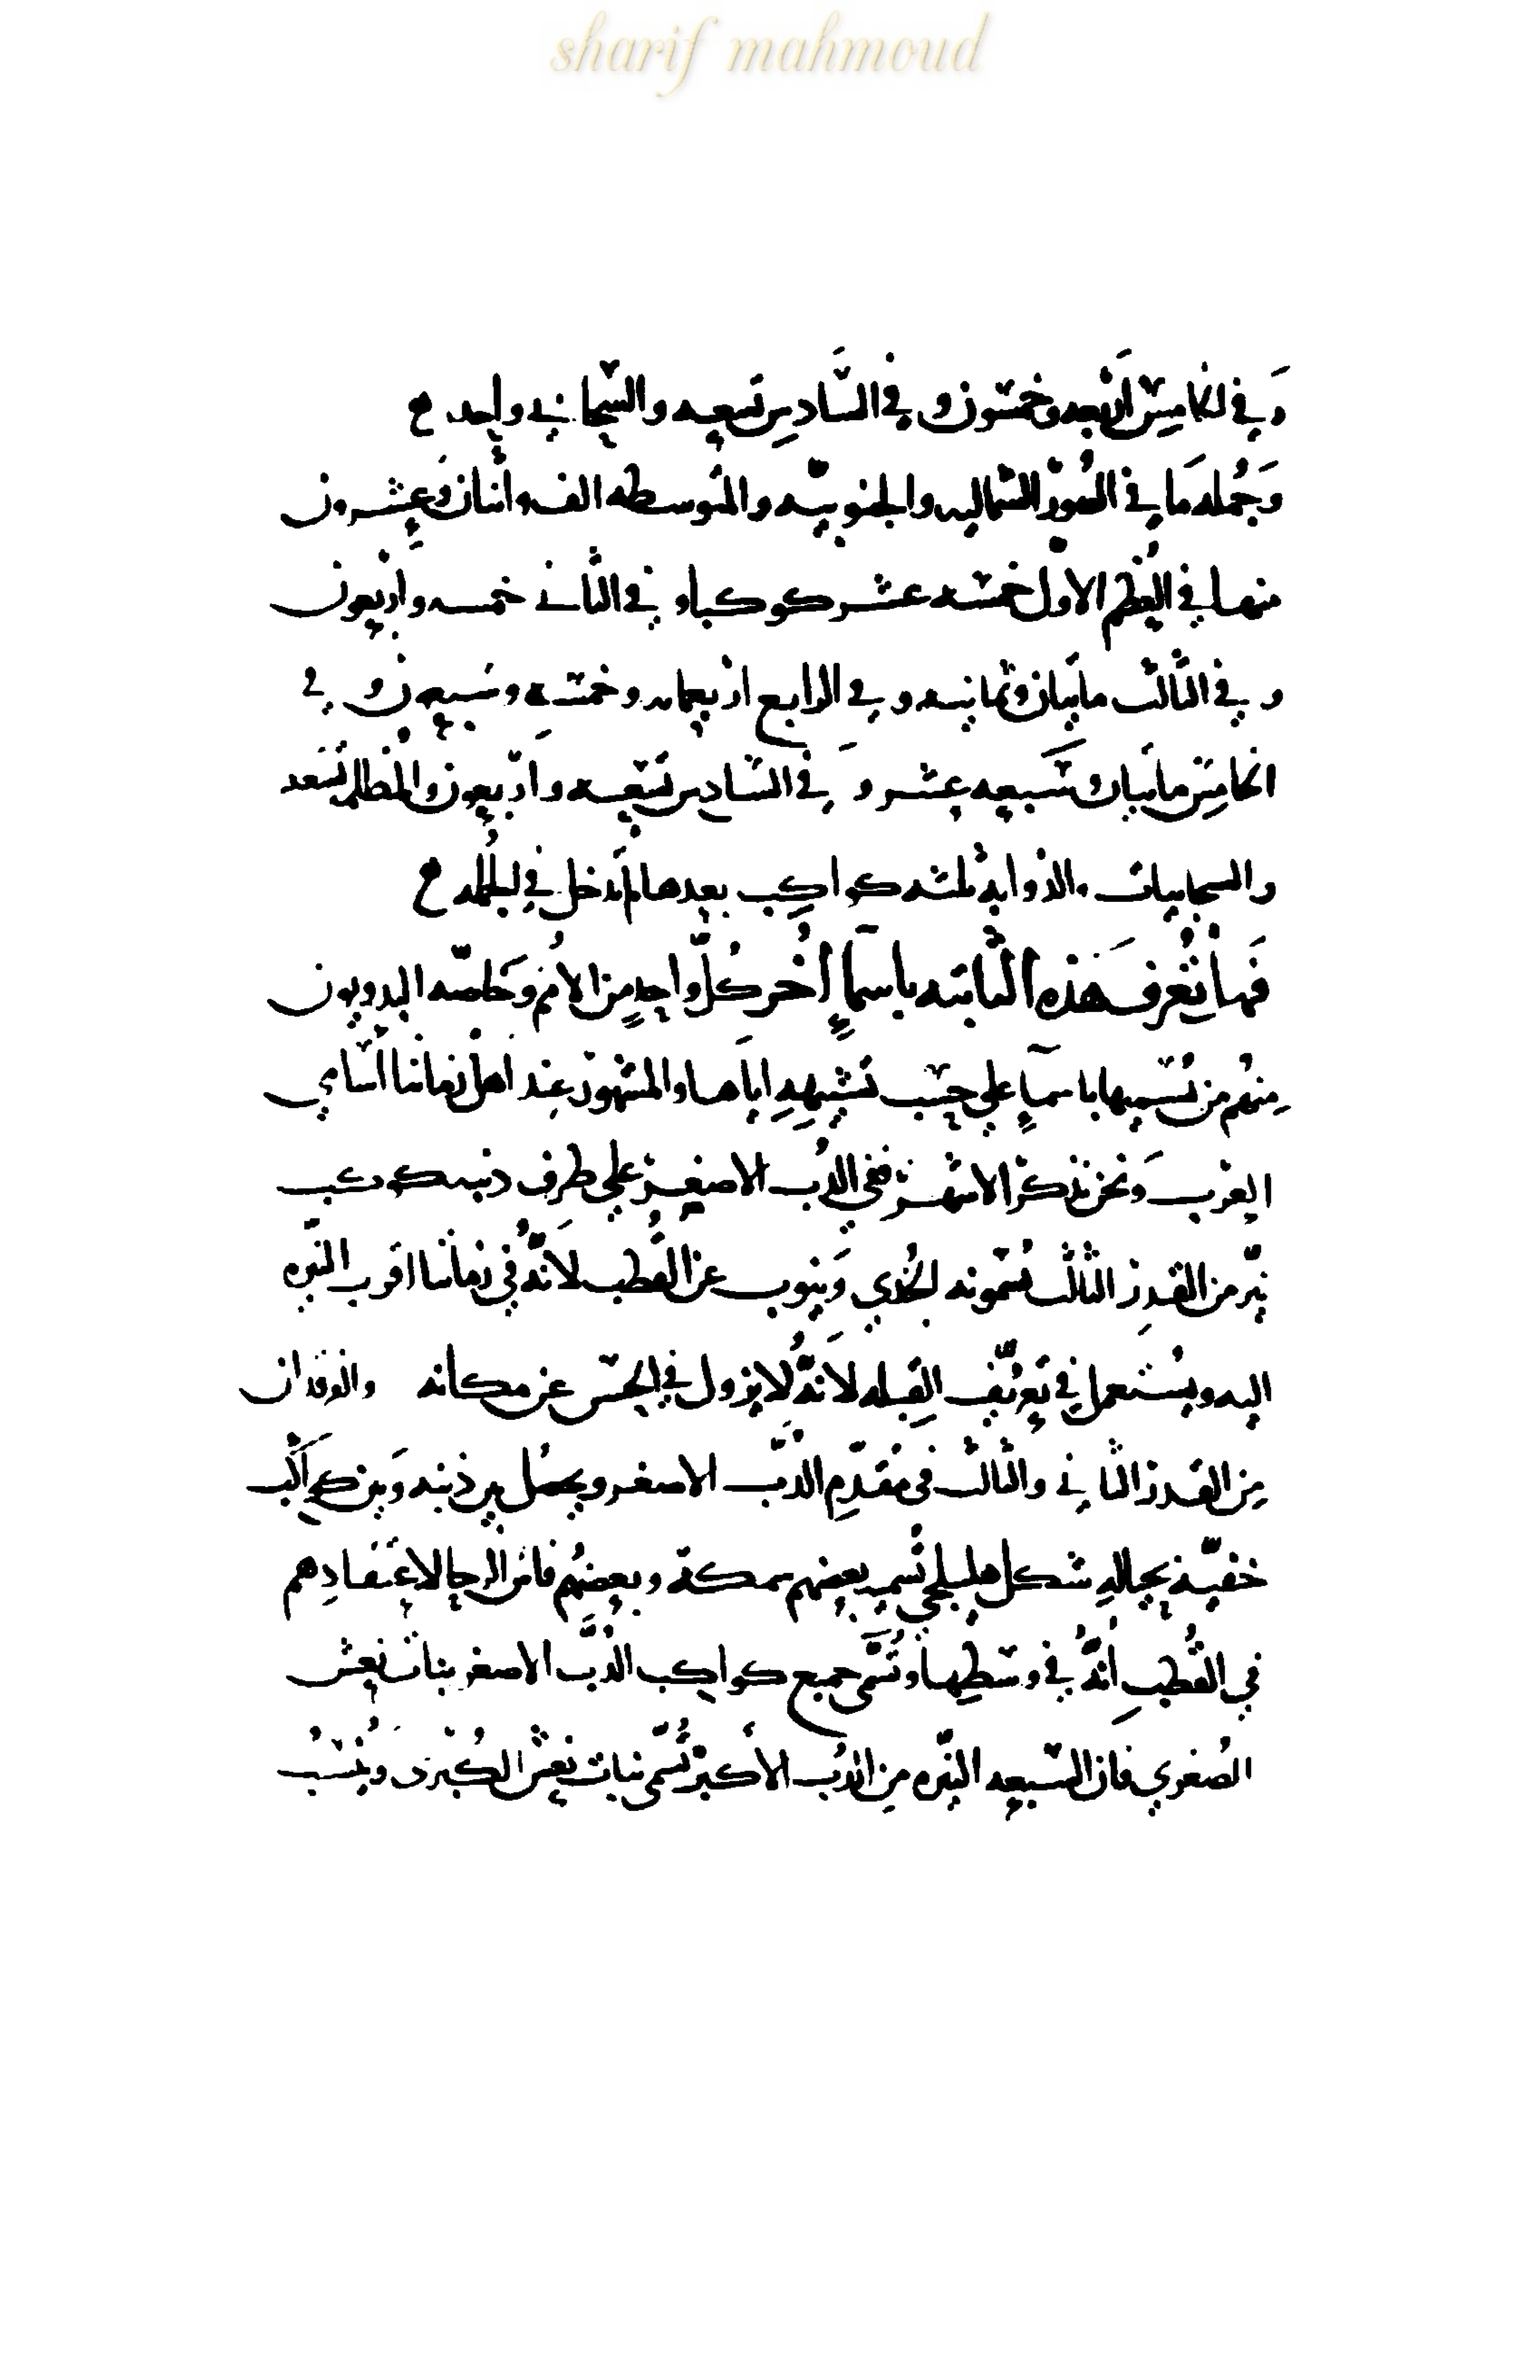 sharif mahmoud
وَفي الخامِسْ أربعه وخمسون وفي السَّادِس تسعه والسحابي واحد
وَجُمله مَا في الصُور الشماليه والجنوبيّه والمتوسطه الف واثنان وَعشرون
منها في العُظم الاول خمسه عشر كوكبا وفي الثاني خمسه واربعون
وفي الثالث مايتان وثمانيه وفي الرابع اربعمايه وخمسه وسَبعون وفي
الخامِس مايتان وسَبعه عشر وفي السَّادِس تسعه واربعون والمُظلمه تسَعه
والسحابيات والذوابه ثلثه كواكب بعدها لم تدخل في الجُمله
فَهل تُعرف هَذه الثابته باسمآءٍ أُخر كُلّ واحدٍ مِن الأمم وَخاصّه البدويون
مِنهُم من يُسَميها باسمآءٍ علي حسَب تشبيههِ اياها والمشهور عند اهل زماننا اسَامي
العرب وَنحن نذكر الاشهر ففي الدُب الاصغر علي طرف ذنبه كوكب
نيّر من القدر الثالث يُسَمونه الجُدي وَينوب عن القُطب لاَنّهُ في زماننا اقرب النيّره
اليه ويُستعمل في تعرّف القِبله لاَنّهُ لا يزول في الحسّ عن مكانه والفرقدان
مِن القدر الثاني والثالث في مُقدّم الدُبّ الاصغر ويحصُل بين ذنبه وَبين كواكب
خفيّه بحياله شكل هليلجي تُسميه بعضهم سمكة وبعضُهم فاسَ الرحا لاعتقادِهم
في القُطب اَنّهُ في وسَطِها وتُسَمّى جميع كواكب الدُبّ الاصغر بنات نعش
الصُغري فان السّبعه النيّره مِن الدُب الاَكبر تُسَمّى بنات نعش الكُبرَى ويُنسَبُ